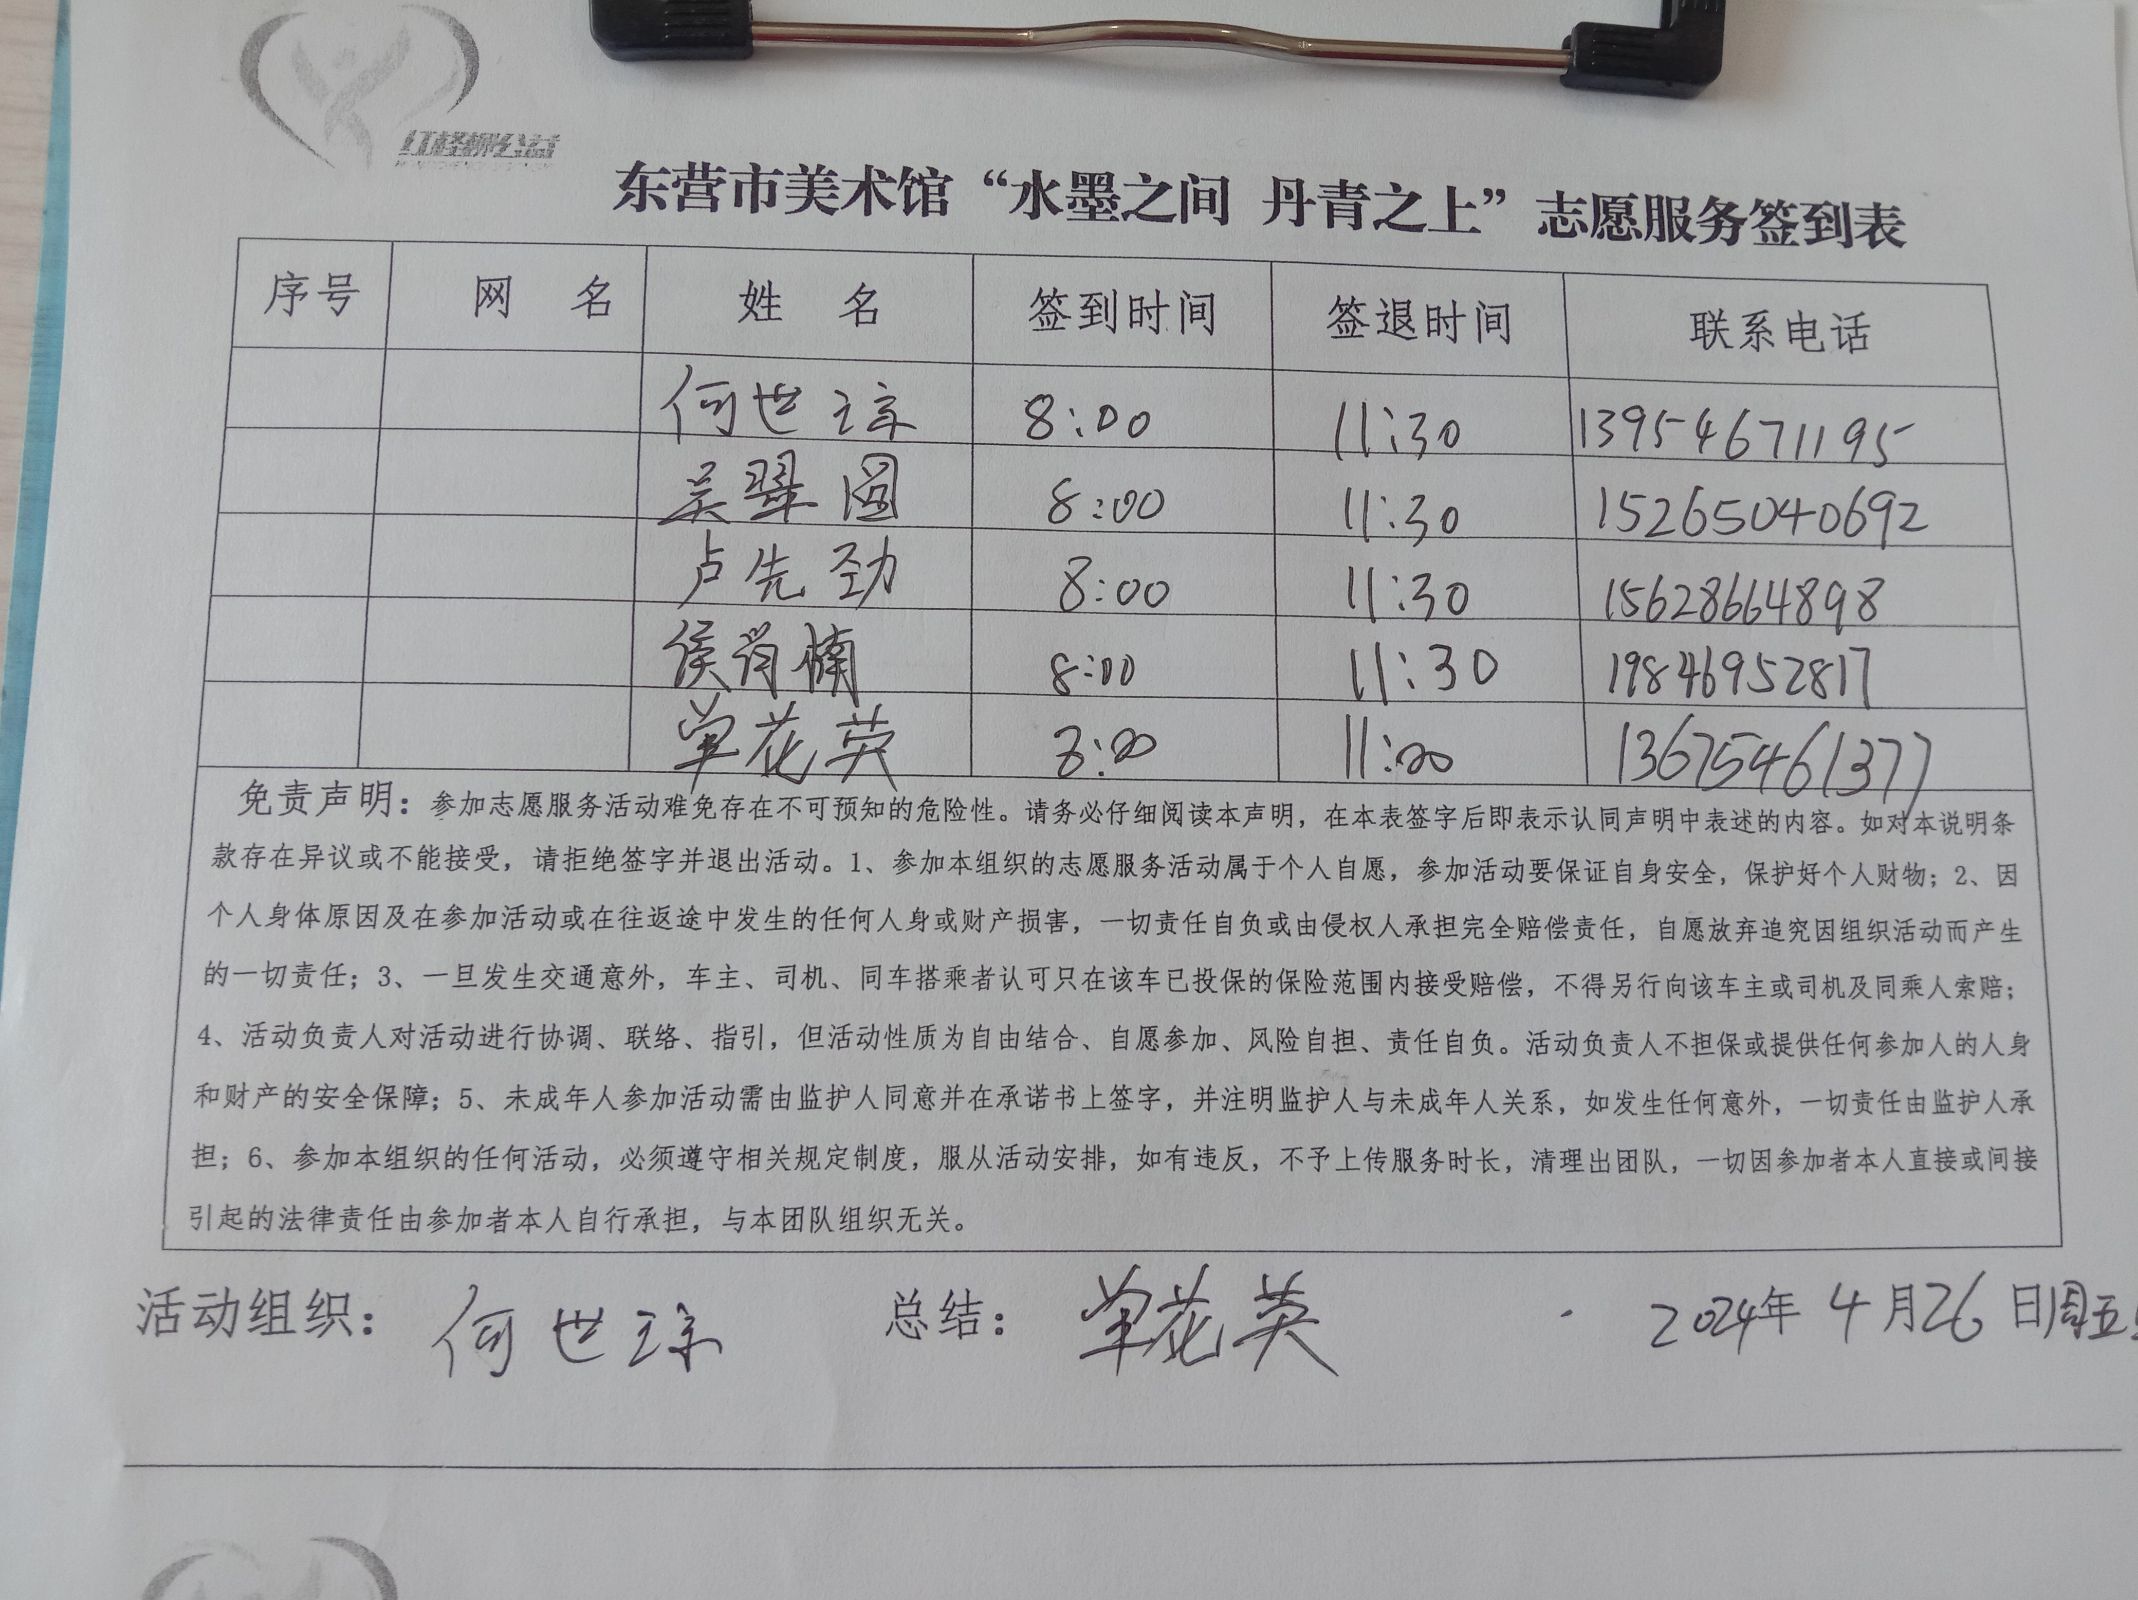 红柽柳公益
东营市美术馆“水墨之间 丹青之上”志愿服务签到表
序号 网 名 姓 名 签到时间 签退时间 联系电话
何世琼 8:00 11:30 13954671195
吴翠圆 8:00 11:30 15265040692
卢先劲 8:00 11:30 15628664898
侯肖楠 8:00 11:30 19846952817
单花英 8:00 11:00 13675461377
免责声明：参加志愿服务活动难免存在不可预知的危险性。请务必仔细阅读本声明，在本表签字后即表示认同声明中表述的内容。如对本说明条
款存在异议或不能接受，请拒绝签字并退出活动。1、参加本组织的志愿服务活动属于个人自愿，参加活动要保证自身安全，保护好个人财物；2、因
个人身体原因及在参加活动或在往返途中发生的任何人身或财产损害，一切责任自负或由侵权人承担完全赔偿责任，自愿放弃追究因组织活动而产生
的一切责任；3、一旦发生交通意外，车主、司机、同车搭乘者认可只在该车已投保的保险范围内接受赔偿，不得另行向该车主或司机及同乘人索赔；
4、活动负责人对活动进行协调、联络、指引，但活动性质为自由结合、自愿参加、风险自担、责任自负。活动负责人不担保或提供任何参加人的人身
和财产的安全保障；5、未成年人参加活动需由监护人同意并在承诺书上签字，并注明监护人与未成年人关系，如发生任何意外，一切责任由监护人承
担；6、参加本组织的任何活动，必须遵守相关规定制度，服从活动安排，如有违反，不予上传服务时长，清理出团队，一切因参加者本人直接或间接
引起的法律责任由参加者本人自行承担，与本团队组织无关。
活动组织： 何世琼 总结： 单花英 2024年 4月26日周五